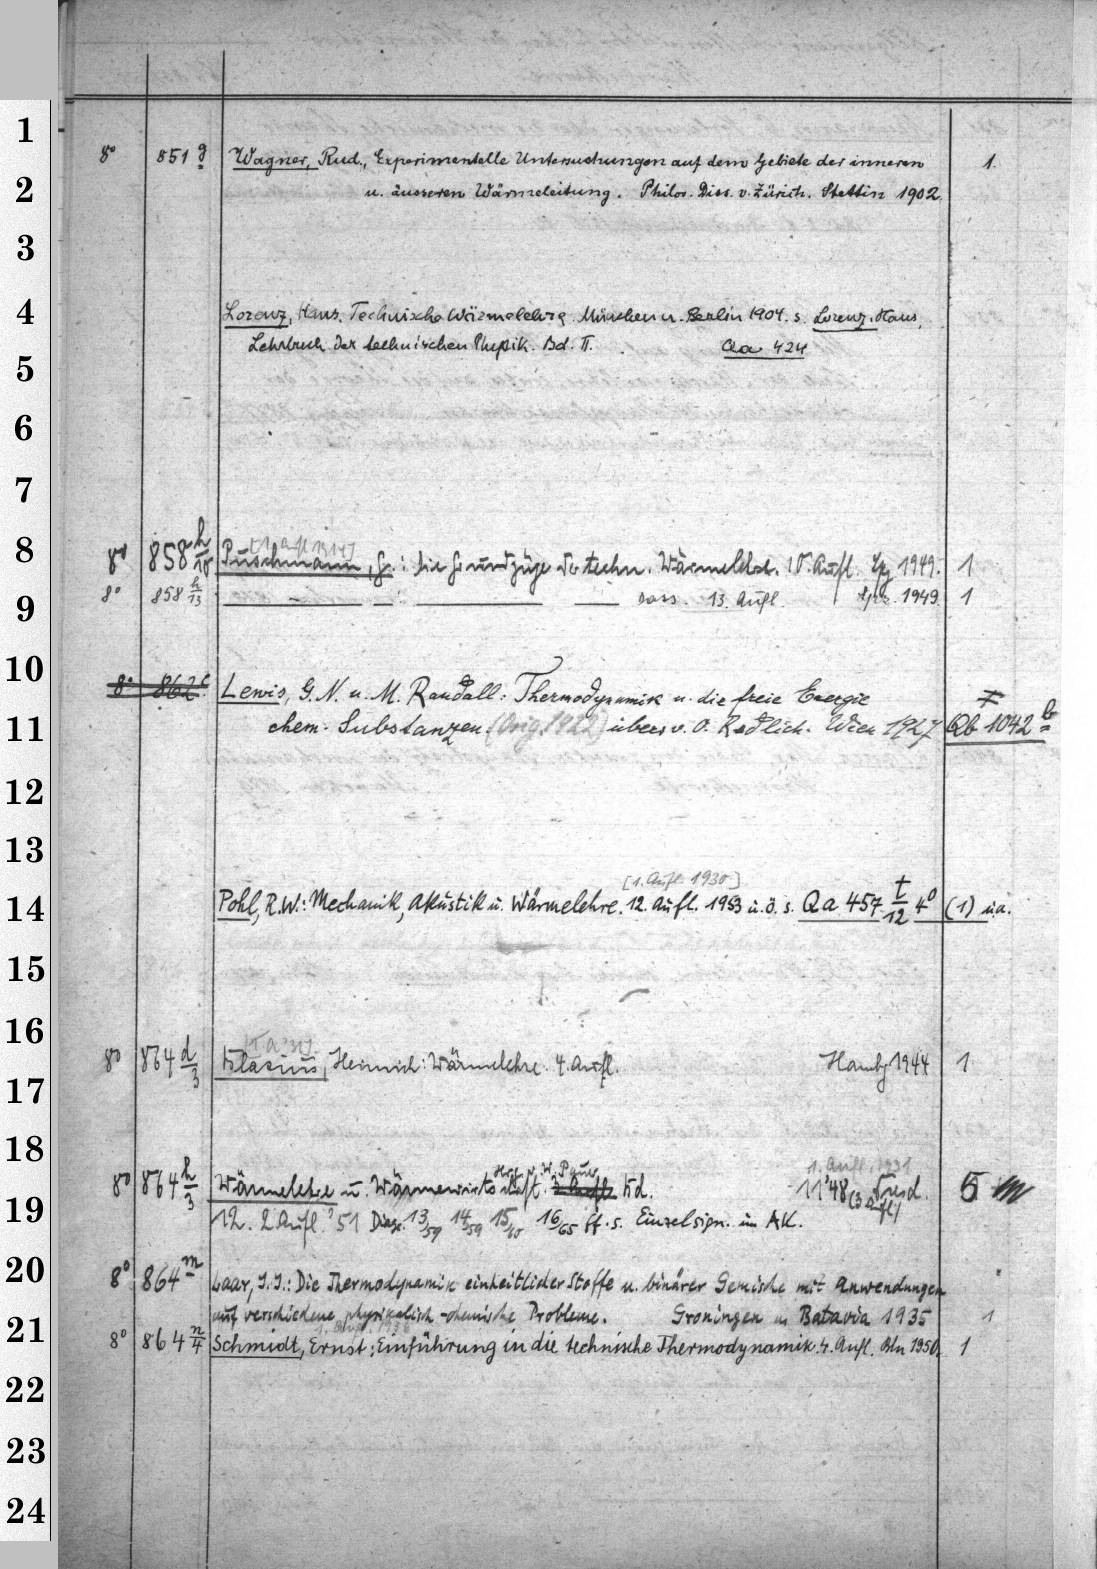 1
8° 851 g Wagner, Rud., Experimentelle Untersuchungen auf dem Gebiete der inneren 1.
2
u. äusseren Wärmeleitung. Philos. Diss. v. Zürich. Stettin 1902.
3
4
Lorenz, Hans, Technische Wärmelehre. München u. Berlin 1904. s. Lorenz, Hans,
Lehrbuch der technischen Physik. Bd. II. Qa 424
5
6
7
8
[1. Aufl. 
8° 858 h/10 Puschmann, Gg.: Die Grundzüge d. techn. Wärmelehre. 10. Aufl. Lpz 1949. 1
8° 858 h/13 dass. 13. Aufl. Lpz. 1949. 1
9
10
8° 862 c Lewis, G. N. u. M. Randall: Thermodynamik u. die freie Energie
11
chem. Substanzen. (Orig. 1922) übers v. O. Redlich. Wien 1927 Qb 1042 b
12
13
[1. Aufl. 1930]
14
Pohl, R.W.: Mechanik, Akustik u. Wärmelehre. 12. Aufl. 1953 u. ö. s. Qa 457 t/12 4° (1) u.a.
15
16
8° 864 d/3 Klasius, Heinrich: Wärmelehre. 4. Aufl. Hambg 1944 1
17
18
Hrg. v. W. Pauer 1. Aufl. 1931
8° 864 h/3 Wärmelehre u. Wärmewirtschaft. 11 '48 (3. Aufl) Dresd. 5
19
12. 2. Aufl. '51 13/59 14/59 15/60 16/65 ff. s. Einzelsign. im AK.
20
8° 864 m Laar, J. J.: Die Thermodynamik einheitlicher Stoffe u. binärer Gemische mit Anwendungen
auf verschiedene physikalisch-chemische Probleme. Groningen u. Batavia 1935 1
21
8° 864 n/4 Schmidt, Ernst: Einführung in die technische Thermodynamik. 4. Aufl. Bln 1950. 1
22
23
24